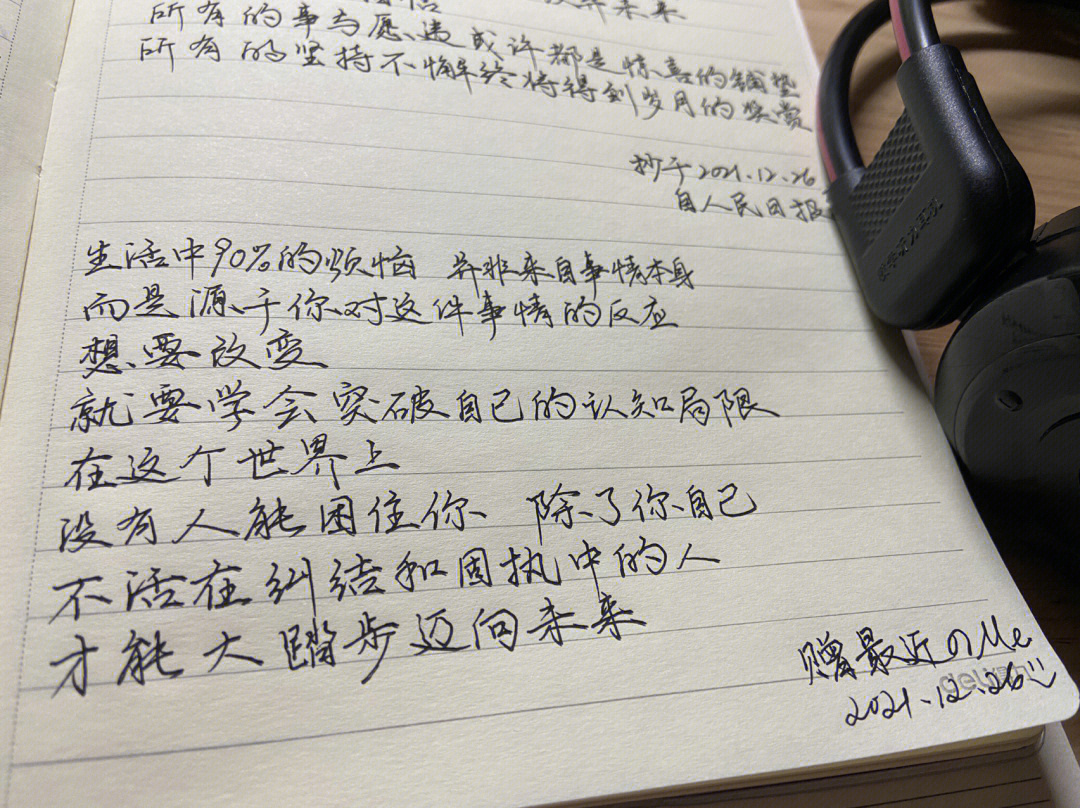 未来
所有的事与愿违或许都是惊喜的铺垫
所有的坚持不懈终将得到岁月的奖赏
抄于2021.12.26
自人民日报
生活中90%的烦恼 并非来自事情本身
而是源于你对这件事情的反应
想要改变
就要学会突破自己的认知局限
在这个世界上
没有人能困住你 除了你自己
不活在纠结和固执中的人
才能大踏步迈向未来
赠最近のMe
2021.12.26
deli